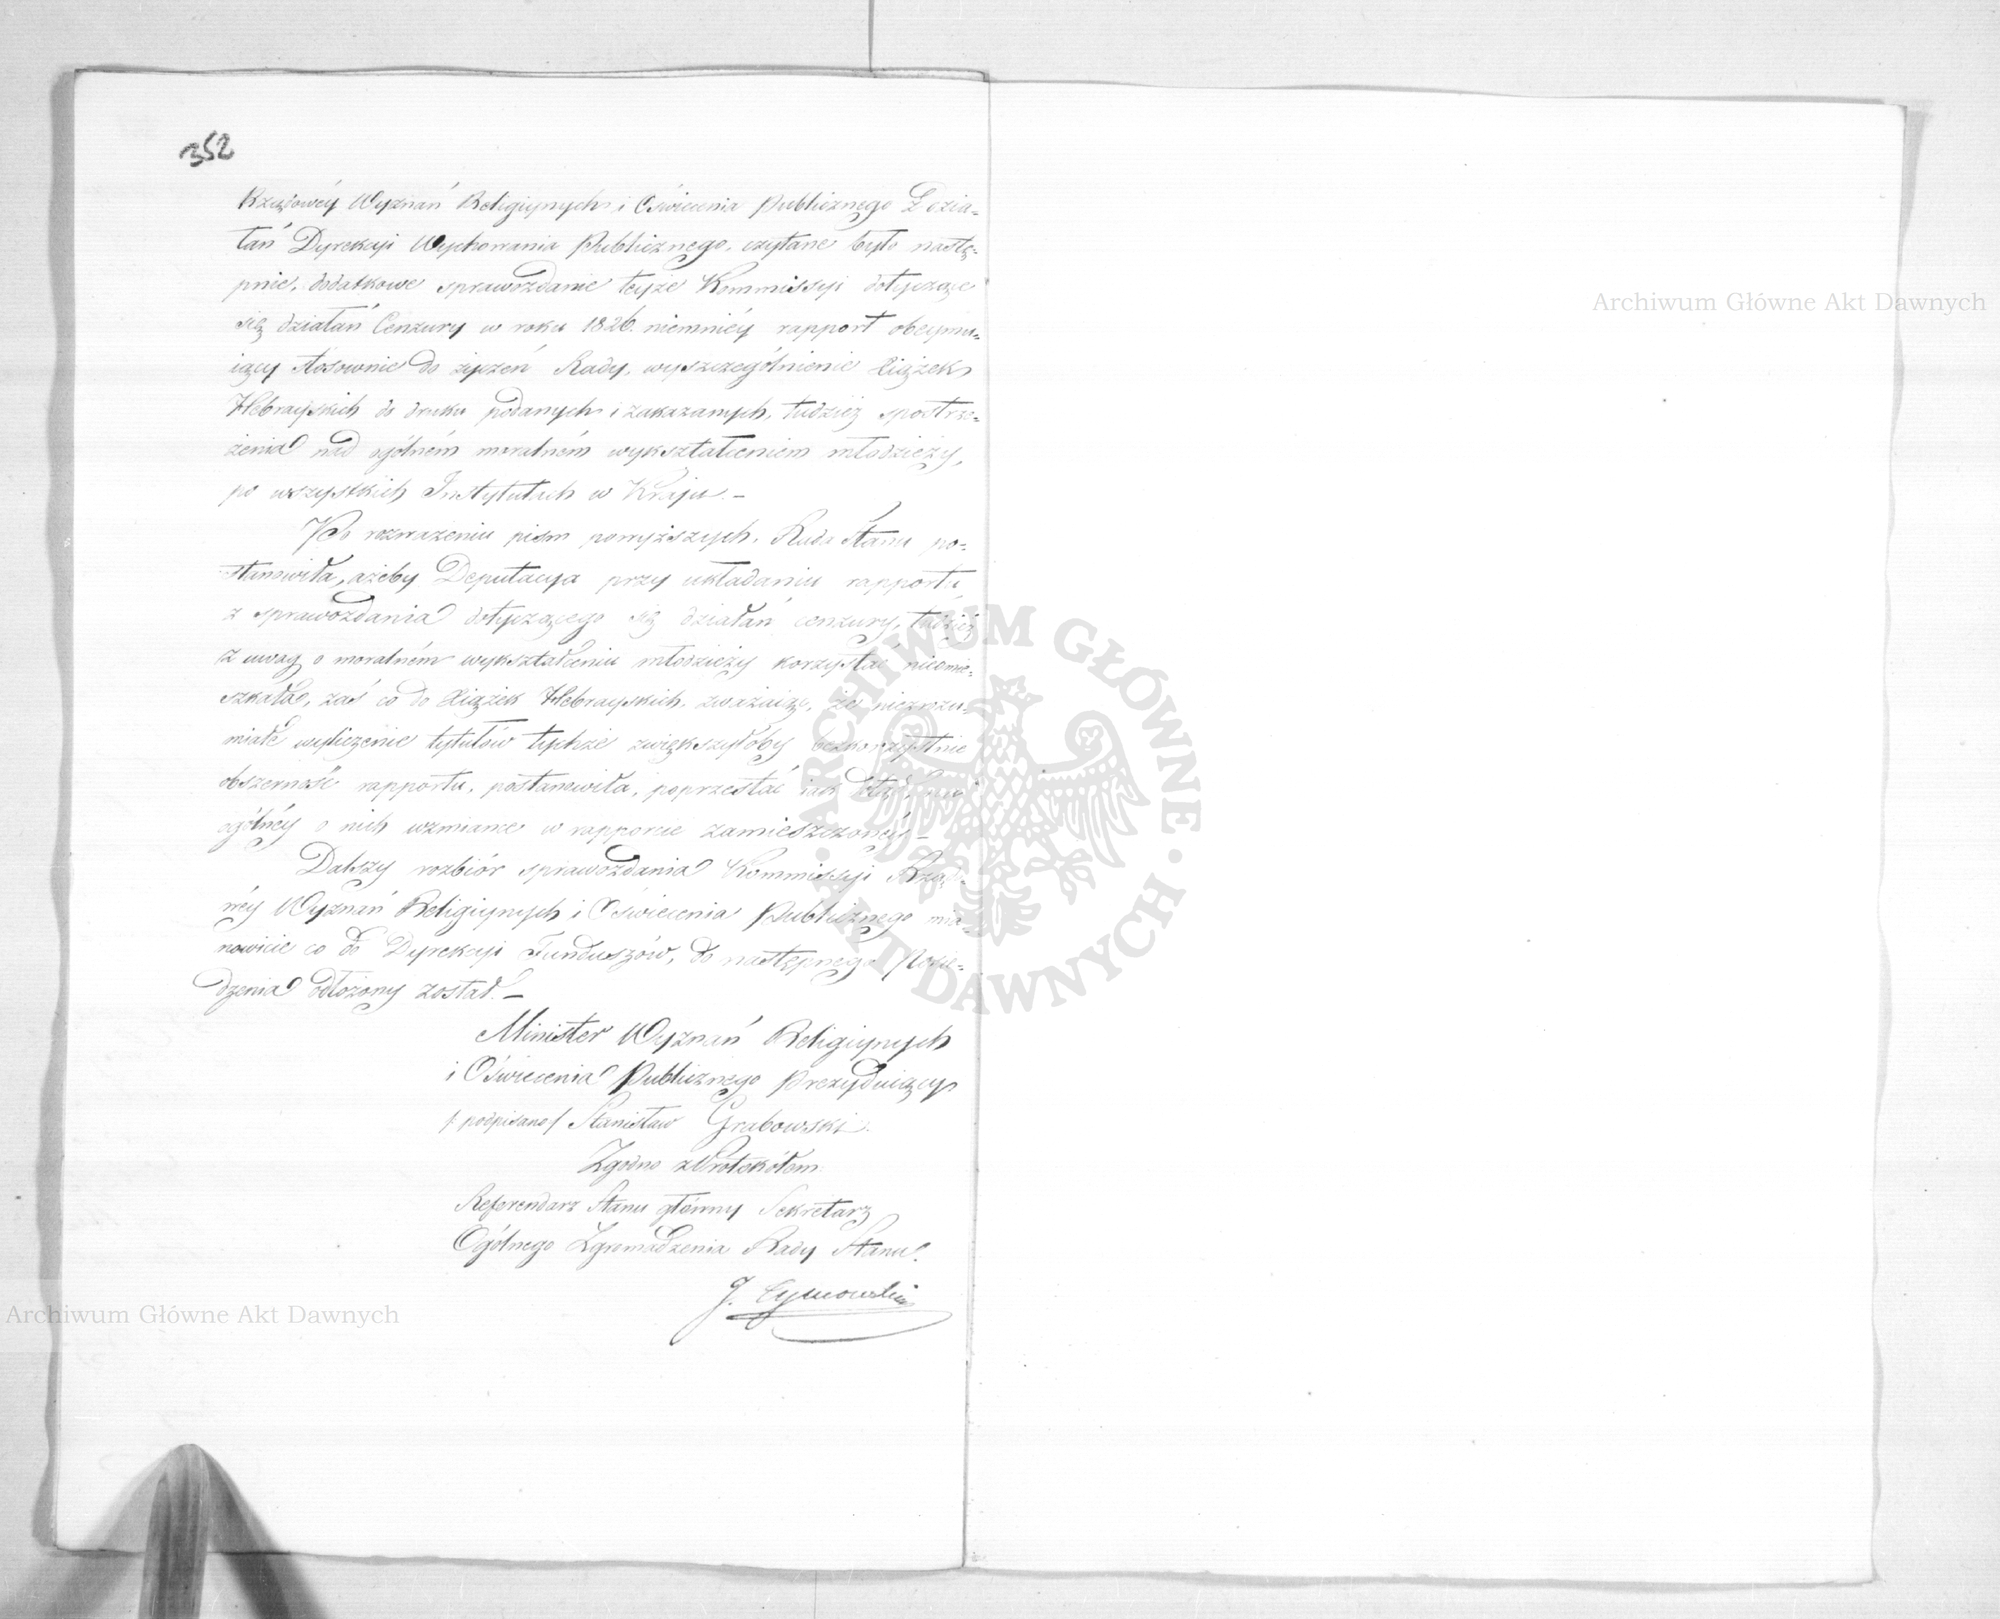 352
Rządowéy Wyznań Religiynych i Oświecenia Publicznego z dzia-
łań Dyrekcyi Wychowania Publicznego, czytane było nastę-
pnie, dodatkowe sprawozdanie teyże Kommissyi dotyczące
się działań Cenzury w roku 1826. niemniéy rapport obeymu-
iący stosownie do życzeń Rady, wyszczególnienie Xiążek
Hebrayskich do druku podanych i zakazanych, tudzież spostrze-
żenia nad ogólném moralném wykształceniem młodzieży,
po wszystkich Instytutach w Kraju. –
Po rozważeniu pism powyższych, Rada Stanu po-
stanowiła, ażeby Deputacya przy układaniu rapportu
z sprawozdania dotyczącego się działań cenzury, tudzież
z uwag o moralném wykształceniu młodzieży korzystać nieomie-
szkała, zaś co do Xiążek Hebrayskich, zważaiąc, że niezrozu-
miałe wyliczenie tytułów tychże zwiększyłoby bezkorzystnie
obszerność rapportu, postanowiła, poprzestać iak dotąd, na
ogólnéy o nich wzmiance w rapporcie zamieszczonéy. –
Dalszy rozbiór sprawozdania Kommissyi Rządo-
wéy Wyznań Religiynych i Oświecenia Publicznego mia-
nowicie co do Dyrekcyi Funduszów, do następnego Posie-
dzenia odłożony został. –
Minister Wyznań Religiynych
i Oświecenia Publicznego Prezyduiący
/: podpisano / Stanisław Grabowski.
Zgodno z Protokółem
Referendarz Stanu główny Sekretarz
Ogólnego Zgromadzenia Rady Stanu.
J. Tymowski
Archiwum Główne Akt Dawnych
ARCHIWUM GŁÓWNE
AKT DAWNYCH
Archiwum Główne Akt Dawnych